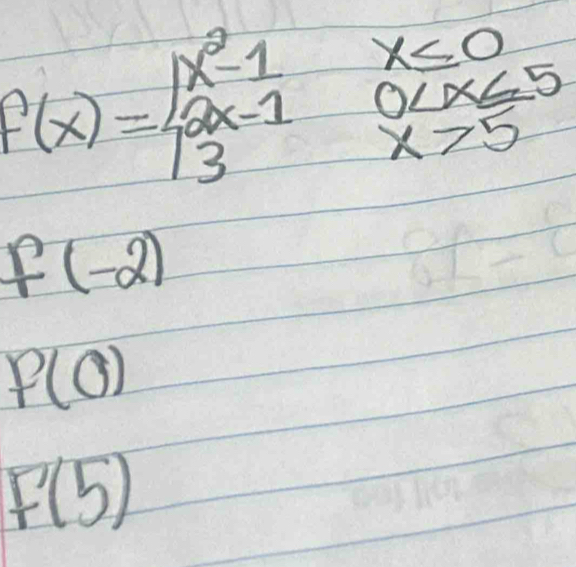 f(x) = { x² - 1    x ≤ 0
2x - 1    0 < x ≤ 5
3    x > 5
f(-2)
f(0)
f(5)